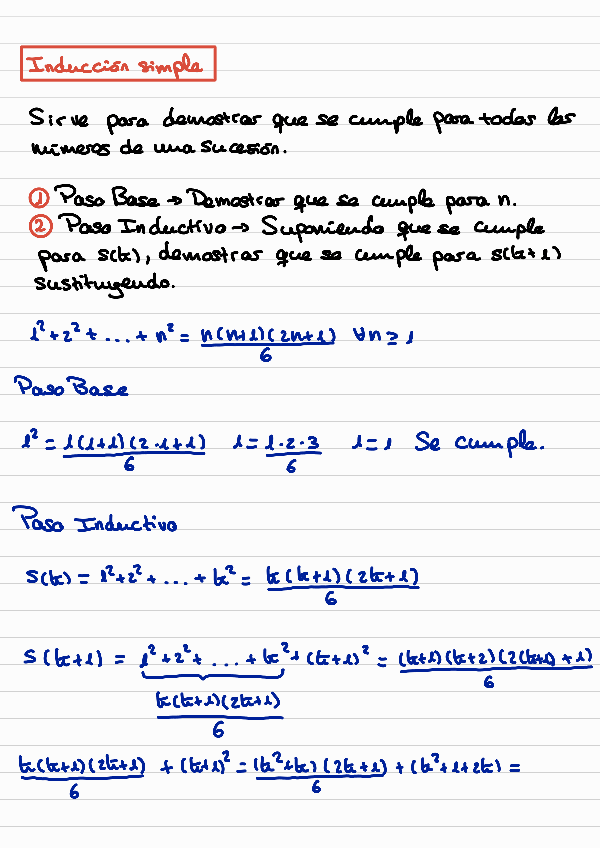 Inducción simple
Sirve para demostrar que se cumple para todos los
números de una sucesión.
① Paso Base → Demostrar que se cumple para n.
② Paso Inductivo → Suponiendo que se cumple
para s(k), demostrar que se cumple para s(k+1)
sustituyendo.
1² + 2² + ... + n² = n(n+1)(2n+1)/6 ∀n ≥ 1
Paso Base
1² = 1(1+1)(2·1+1)/6 1 = 1·2·3/6 1 = 1 Se cumple.
Paso Inductivo
S(k) = 1² + 2² + ... + k² = k(k+1)(2k+1)/6
S(k+1) = 1² + 2² + ... + k² + (k+1)² = (k+1)(k+2)(2(k+1)+1)/6
k(k+1)(2k+1)/6
k(k+1)(2k+1)/6 + (k+1)² = (k²+k)(2k+1)/6 + (k²+1+2k) =